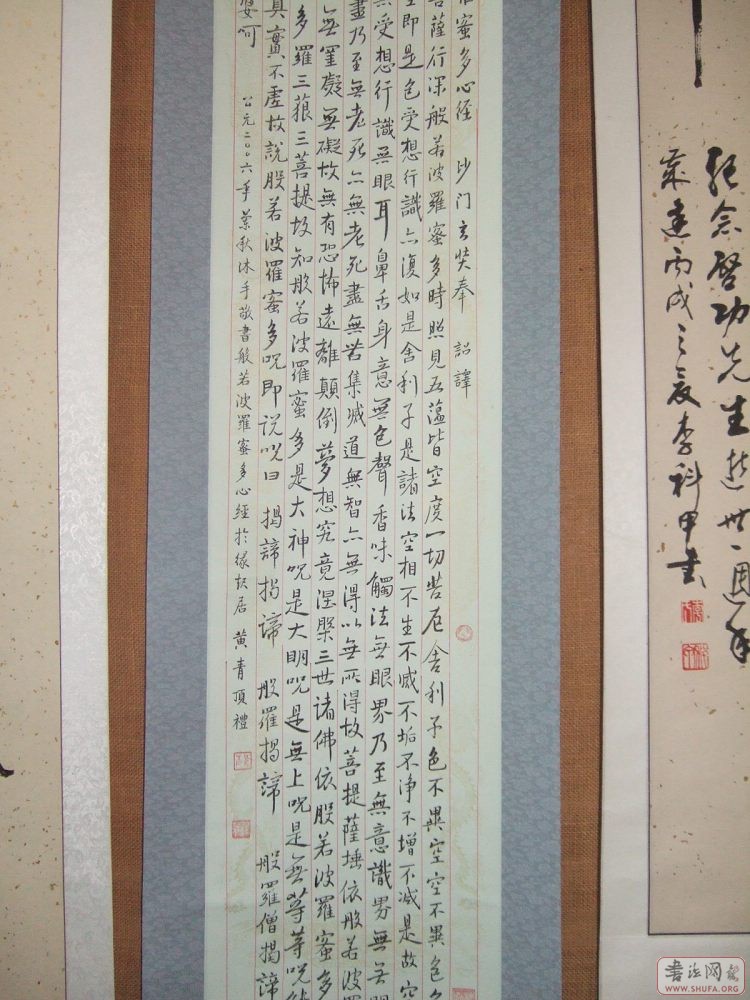 纪念啓功先生逝世一週年
丙戌之夏李科甲書
蜜多心经 沙门玄奘奉 詔譯
菩薩行深般若波羅蜜多時照見五蕴皆空度一切苦厄舍利子色不異空空不異色
即是色受想行識亦復如是舍利子是諸法空相不生不滅不垢不净不增不减是故空
無受想行識無眼耳鼻舌身意無色聲香味觸法無眼界乃至無意識界無無明
盡乃至無老死亦無老死盡無苦集滅道無智亦無得以無所得故菩提薩埵依般若波羅
無罣礙無礙故無有恐怖遠離顛倒夢想究竟涅槃三世諸佛依般若波羅蜜多
多羅三藐三菩提故知般若波羅蜜多是大神呪是大明呪是無上呪是無等等呪能
真實不虚故說般若波羅蜜多呪即说呪曰 揭諦揭諦 般羅揭諦 般羅僧揭諦
婆呵
公元二〇〇六年秋沐手敬書般若波羅蜜多心經於缘居 黄青頂禮
書法网
WWW.SHUFA.ORG